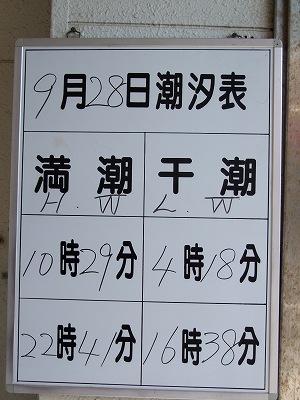 9月28日潮汐表
満潮 干潮
H.W L.W
10時29分 4時18分
22時41分 16時38分